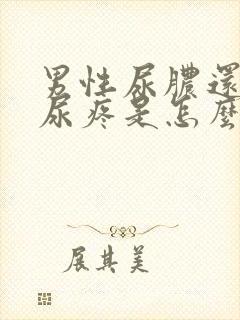 男性尿膿還
尿疼是怎麼
展其美